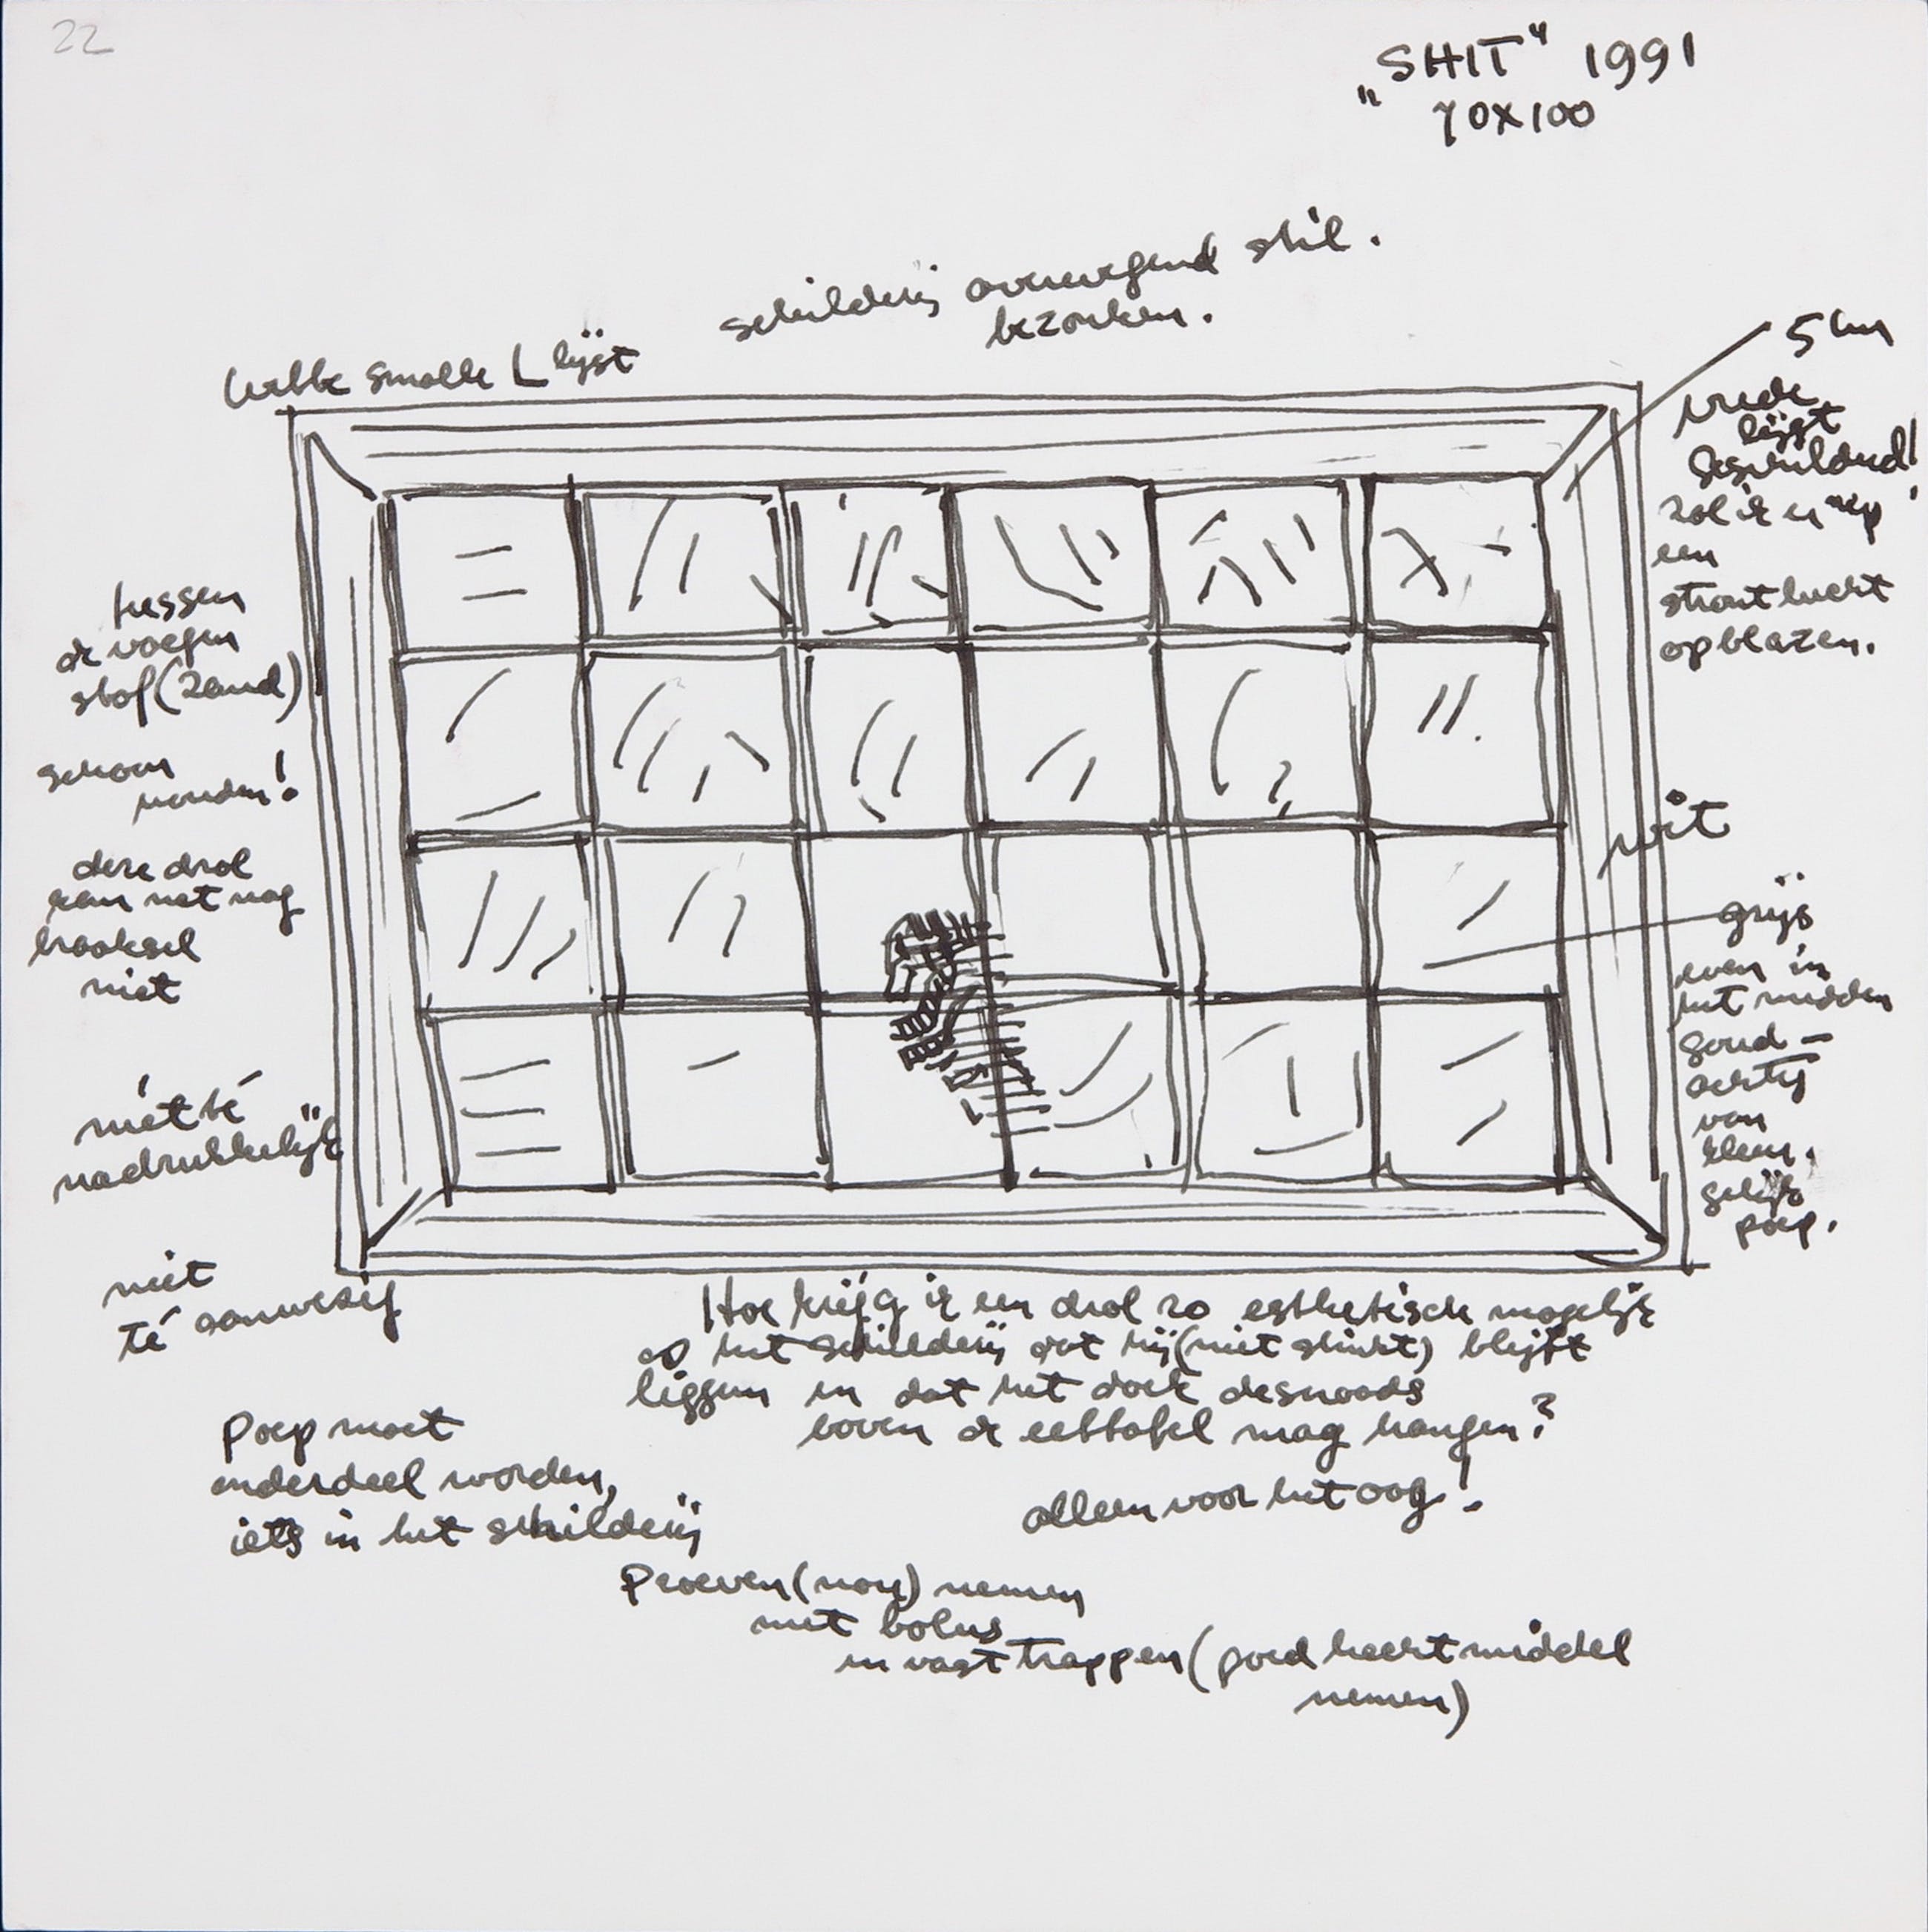 22
„SHIT" 1991
70x100
schilderij overwegend stil.
bezonken.
smalle L lijst
5 cm
brede
lijst
geschilderd!
zal ik er op
een
strontlucht
opblazen.
tussen
de voegen
stof (zand)
schoon
houden!
deze drol
kan net nog
braaksel
niet
wit
grijs
even in
het midden
goud-
achtig
van
kleur.
gelijk
poep.
niet té
nadrukkelijk
niet
té aanwezig
Hoe krijg ik een drol zo esthetisch mogelijk
op het schilderij dat hij (niet stinkt) blijft
liggen en dat het doek desnoods
boven de eettafel mag hangen?
alleen voor het oog!
Poep moet
onderdeel worden,
iets in het schilderij
Proeven nemen
met bolus
en vast trappen (goed hechtmiddel
nemen)